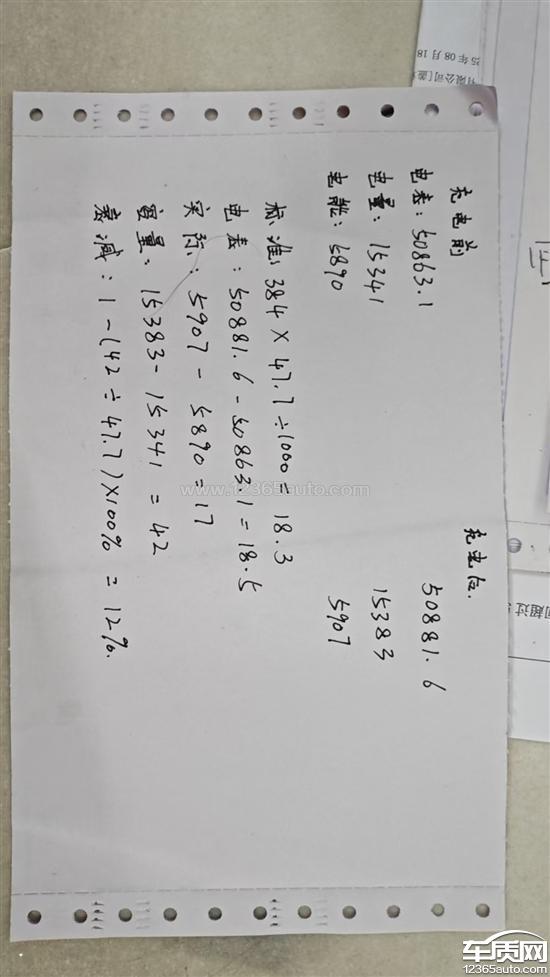 充电前 充电后.
电表: 50863.1 50881.6
电量: 15341 15383
电能: 5890 5907
标准: 384 × 47.7 ÷ 1000 = 18.3
电表: 50881.6 - 50863.1 = 18.5
实际: 5907 - 5890 = 17
容量: 15383 - 15341 = 42
衰减: 1 - (42 ÷ 47.7) × 100% = 12%.
25年08月18
有限公司
司超过
www.12365auto.com
车质网
12365auto.com